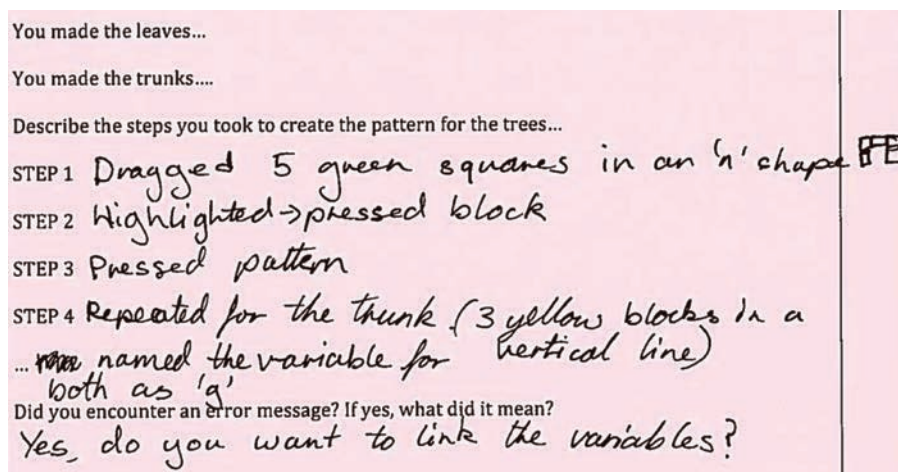 You made the leaves...
You made the trunks....
Describe the steps you took to create the pattern for the trees...
STEP 1 Dragged 5 green squares in an 'n' shape
STEP 2 Highlighted → pressed block
STEP 3 Pressed pattern
STEP 4 Repeated for the trunk (3 yellow blocks in a
vertical line)
... named the variable for
both as 'g'
Did you encounter an error message? If yes, what did it mean?
Yes, do you want to link the variables?